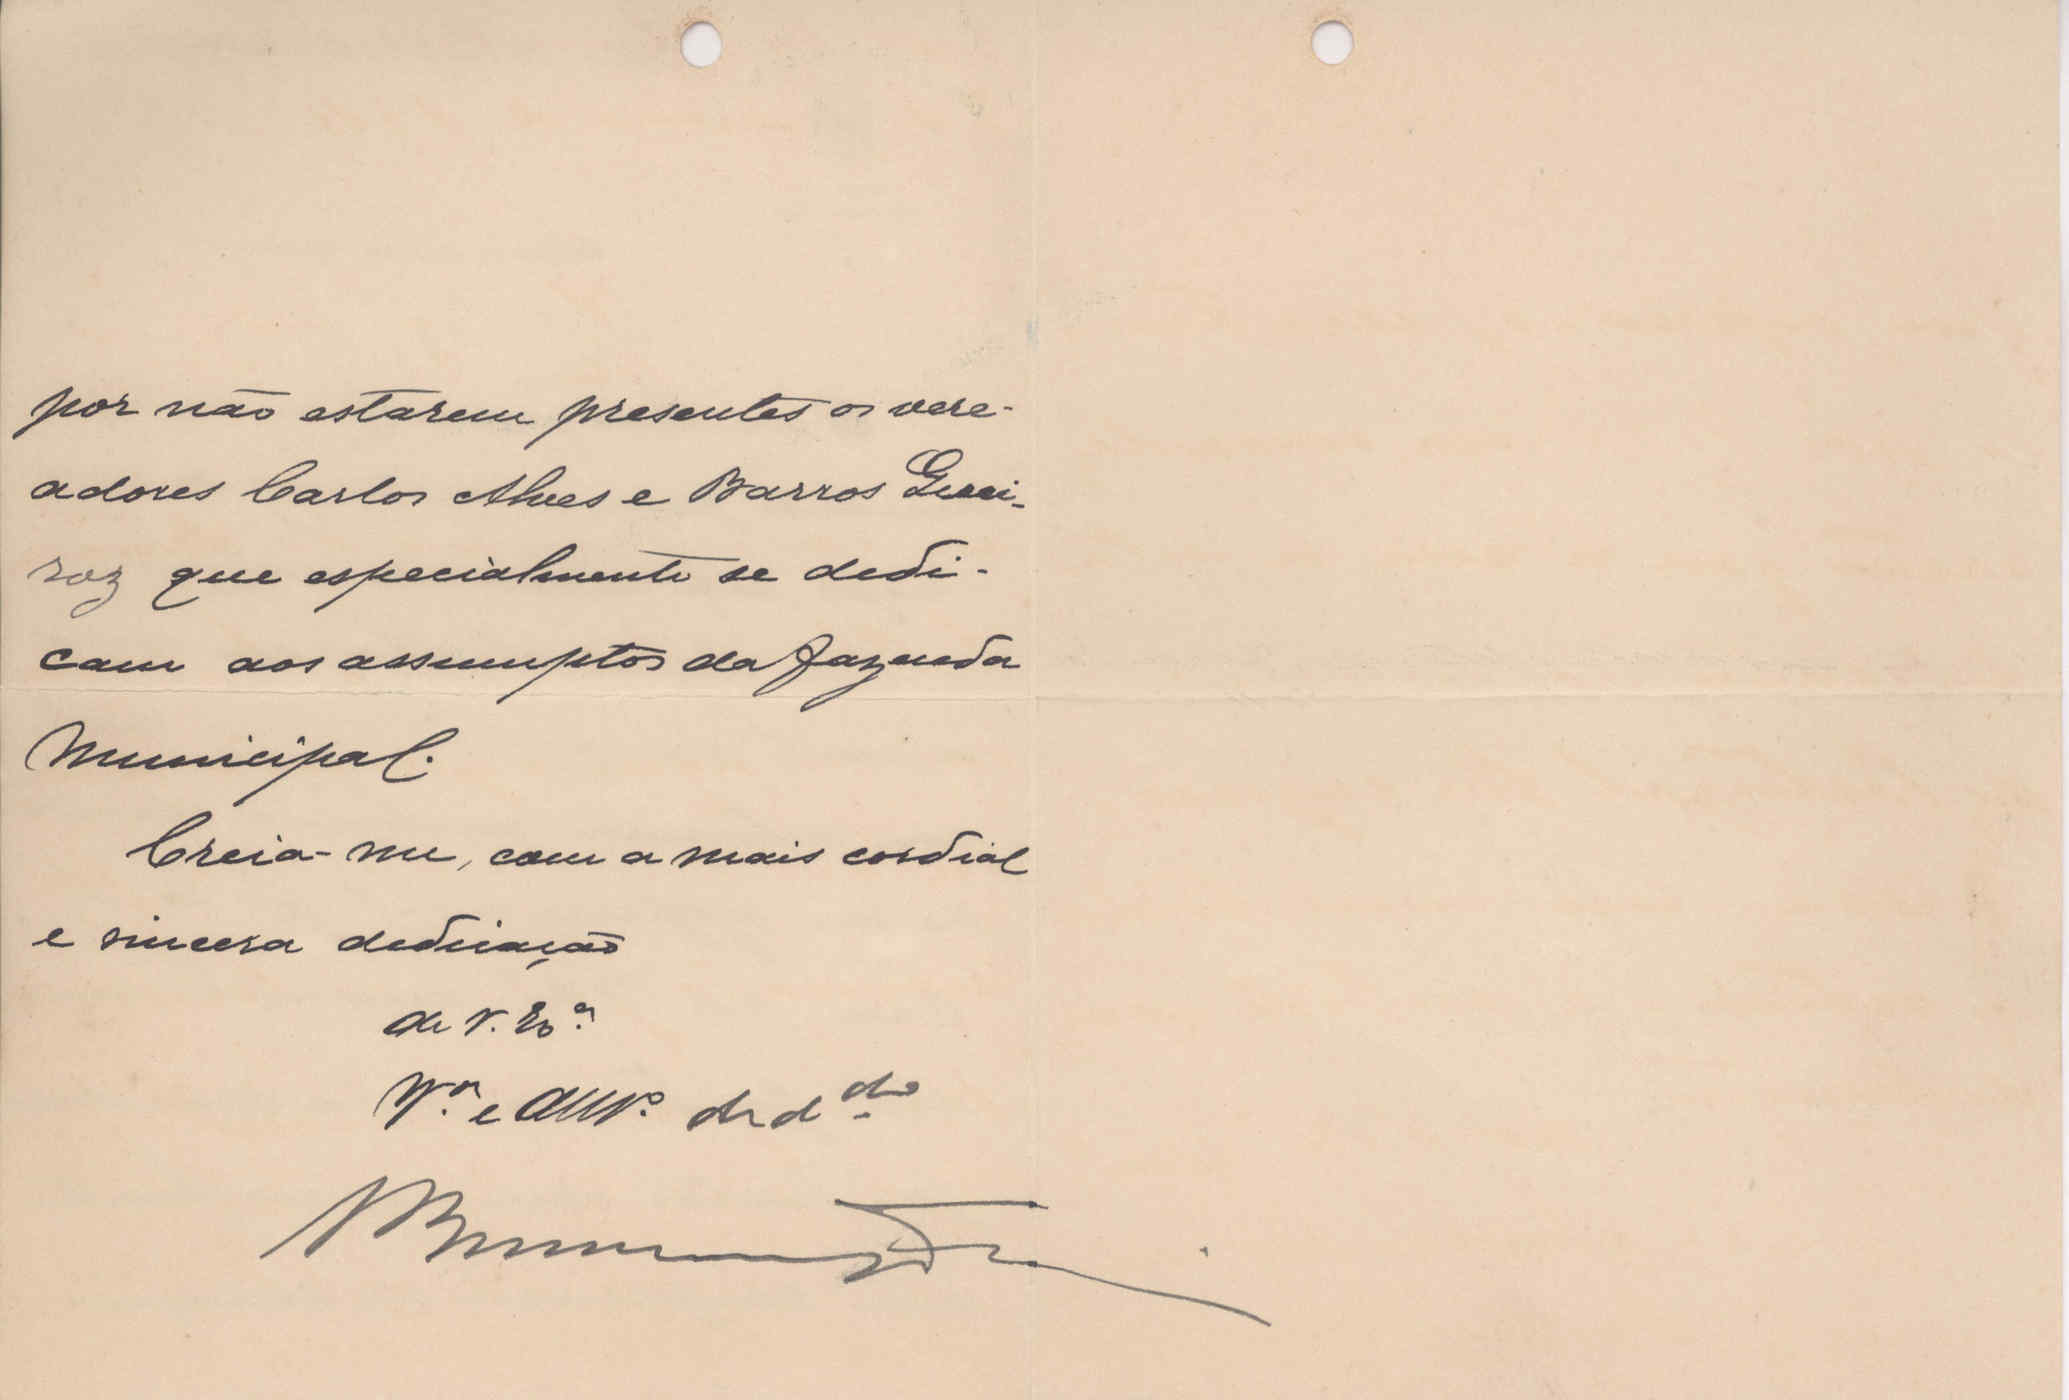 por não estarem presentes os vere-
adores Carlos Alves e Barros Quei-
roz que especialmente se dedi-
cam aos assumptos da fazenda
Municipal.
Creia-me, com a mais cordial
e sincera dedicação
de V. Exª
e de